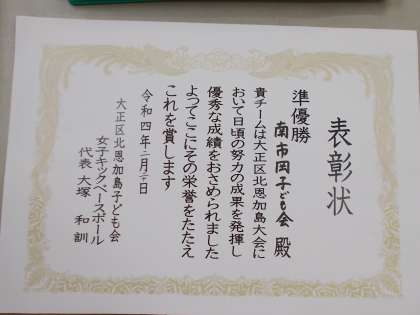 表彰状
準優勝
南市岡子ども会 殿
貴チームは大正区北恩加島大会に
おいて日頃の努力の成果を発揮し
優秀な成績をおさめられました
よってここにその栄誉をたたえ
これを賞します
令和四年二月二日
大正区北恩加島子ども会
女子キックベースボール
代表 大塚 和訓